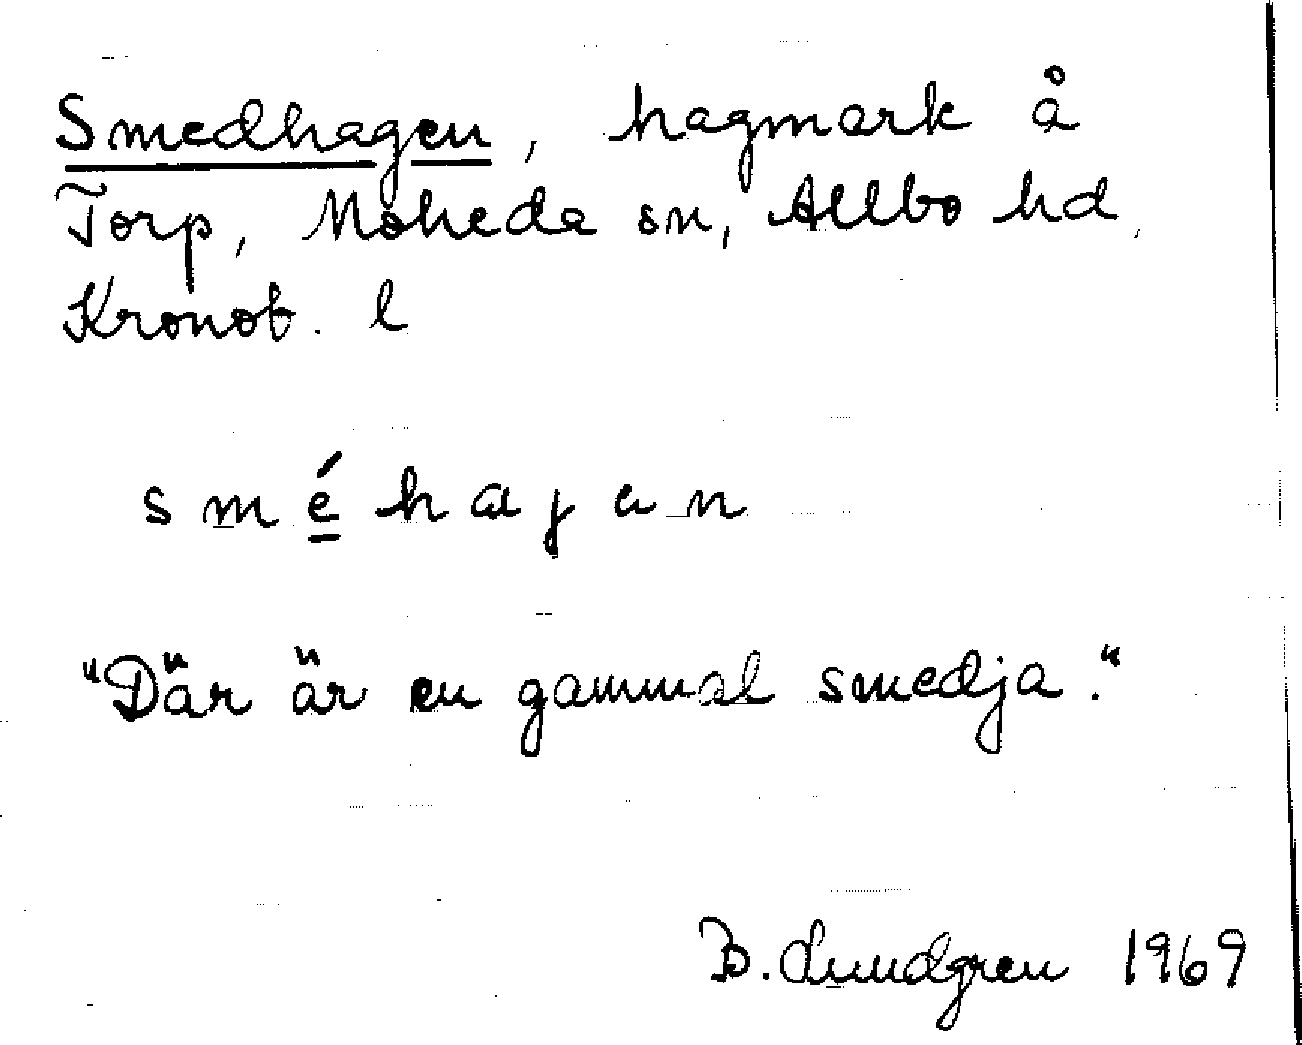 Smedhagen, hagmark å
Torp, Moheda sn, Allbo hd,
Kronob. l
sméhagen
"Där är en gammal smedja."
B. Lundgren 1969